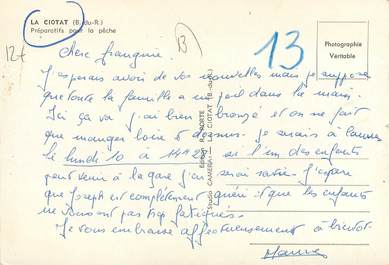 LA CIOTAT (B.-du-R.)
Préparatifs pour la pêche
12f
B
13
Photographie
Véritable
Chère Françoise
J'esperais avoir de vos nouvelles mais je suppose
que toute la famille a un poil dans la main.
Ici ça va j'ai bien bronzé et on ne fait
que manger boire et dormir. Je serais à
le lundi 10 à 14h2 si l'un des enfants
peut venir à la gare j'en serai ravie. J'espère
que Joseph est complètement guéri et que les enfants
ne vous ont pas trop fatiguée.
Je vous embrasse affectueusement à bientôt
Edition
Studio CAMERA - LA CIOTAT (B.-du-R.)